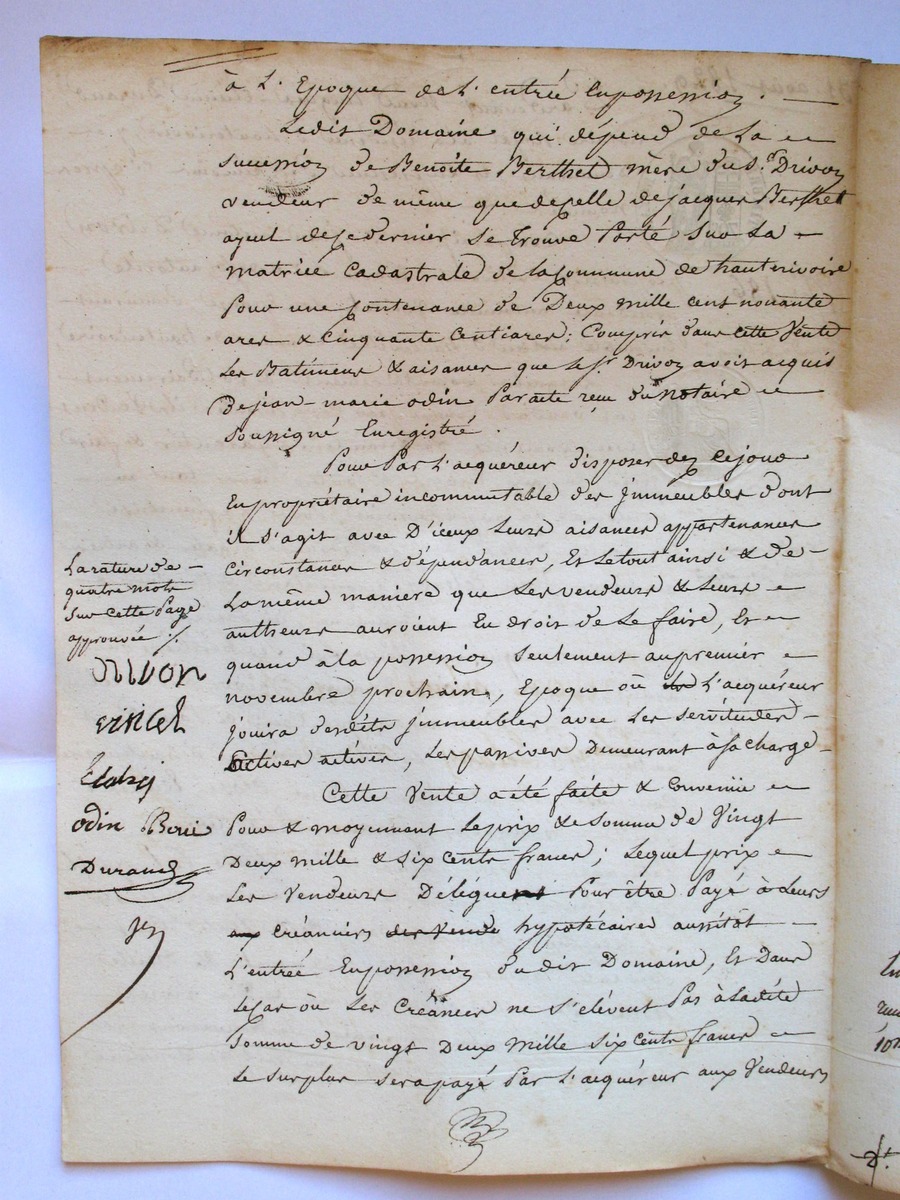 à L'Epoque de L'entrée en possession .
Ledit Domaine qui dépend de La
succession de Benoite Berthet mère du S.r Drivon
vendeur de même que de celle de jacques Berthet
ayeul de ce dernier se trouve Porté sur La
matrice cadastrale de la Commune de hauterivoire
Pour une Contenance de Deux mille cent nonante
ares & cinquante centiares ; Compris dans cette Vente
Les Batimens & aisances que le S.r Drivon avoit acquis
de jean-marie odin Par acte reçu du notaire
soussigné Enregistré .
Pour Par L'acquéreur disposer dez ce jour
En propriétaire incommutable des jmmeubles dont
il s'agit avec D'iceux Leurs aisances appartenances
circonstances & dépendances, Et Le tout ainsi & de
La même manière que Les vendeurs & Leurs
autheurs auroient Eu droit de Le faire, Et
quand à la possession seulement au premier
novembre prochain, Epoque où L'acquéreur
jouira desdits jmmeubles avec Les servitudes
actives, Les passives Demeurant à sa charge
Cette Vente a été faite & Convenüe
Pour & moyennant Le prix & somme de Vingt
Deux mille & six cents francs ; Lequel prix
Les Vendeurs Délèguent Pour être Payé à Leurs
créanciers hypotécaires aussitôt
L'entrée En possession dudit Domaine, Et Dans
Le Cas où Les Créances ne s'élèvent Pas à Ladite
somme de vingt Deux mille six cents francs
Le surplus sera payé Par L'acquéreur aux Vendeurs
La rature de
quatre mots
sur cette Page
approuvée ./.
Drivon
odin
Durand